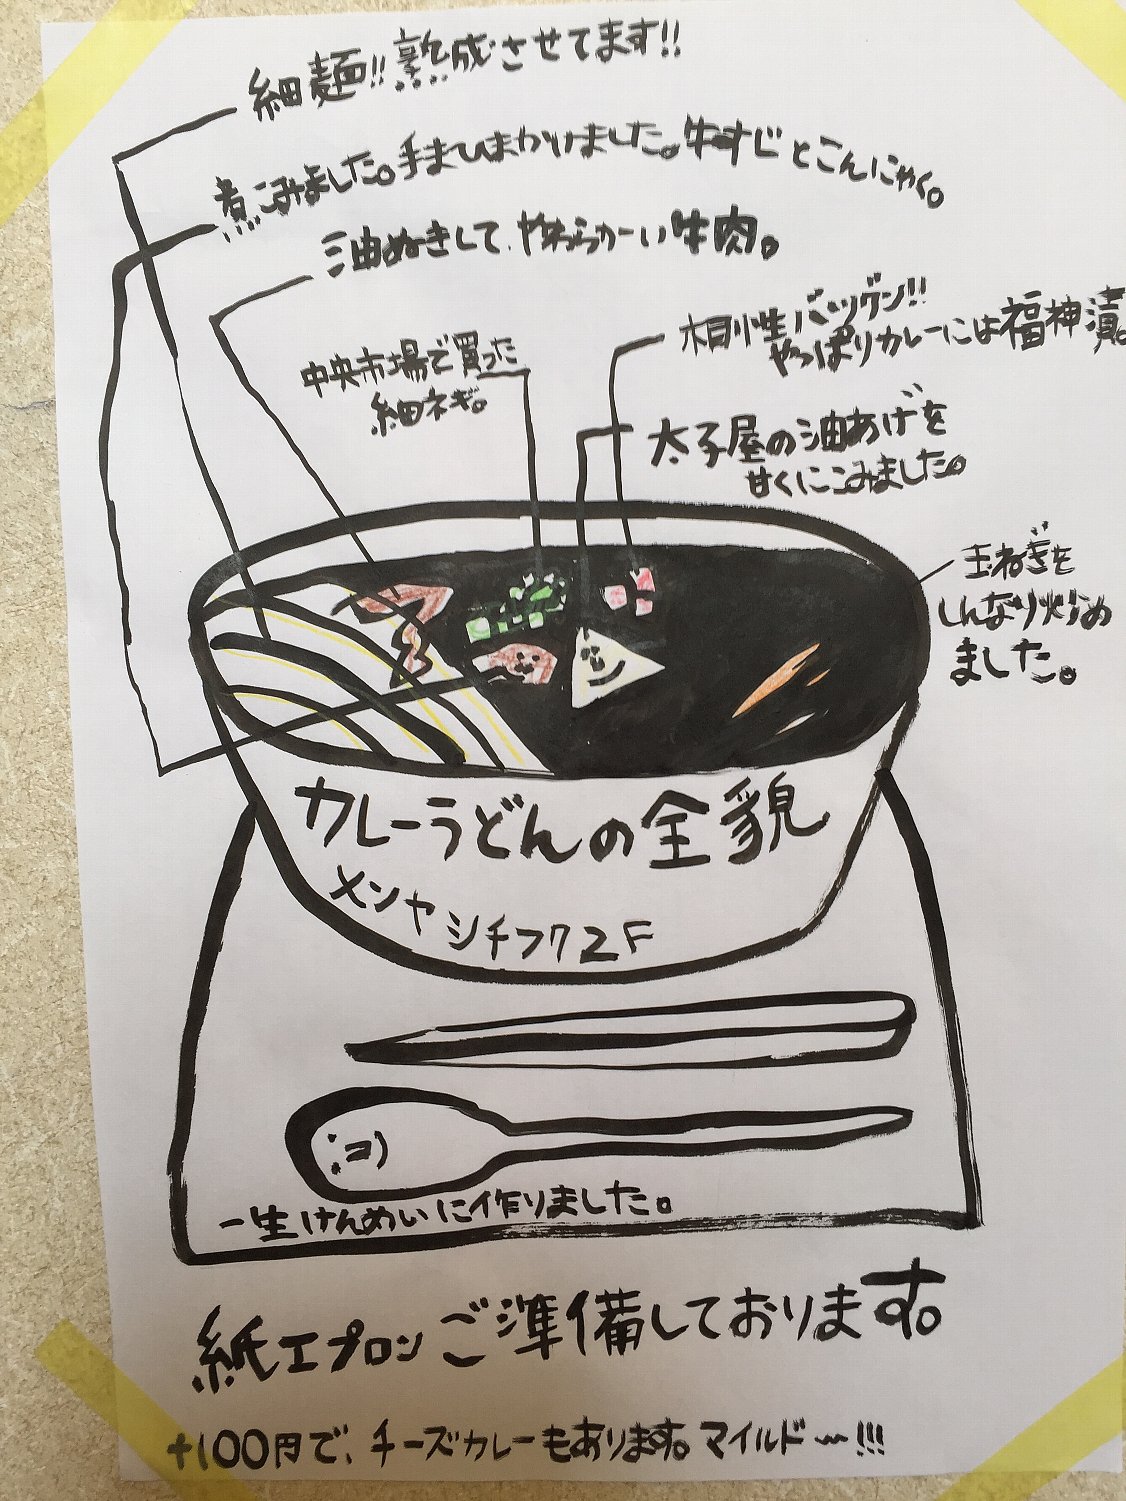 細麺!!熟成させてます!!
煮こみました。手まひまかけました。牛すじとこんにゃく。
油ぬきして、やわらかーい牛肉。
相性バツグン!!
やっぱりカレーには福神漬。
中央市場で買った
細ネギ。
太子屋の油あげを
甘くにこみました。
玉ねぎを
しんなり炒め
ました。
カレーうどんの全貌
メンヤシチフク2F
一生けんめいに作りました。
紙エプロンご準備しております。
+100円で、チーズカレーもあります。マイルド〜!!!